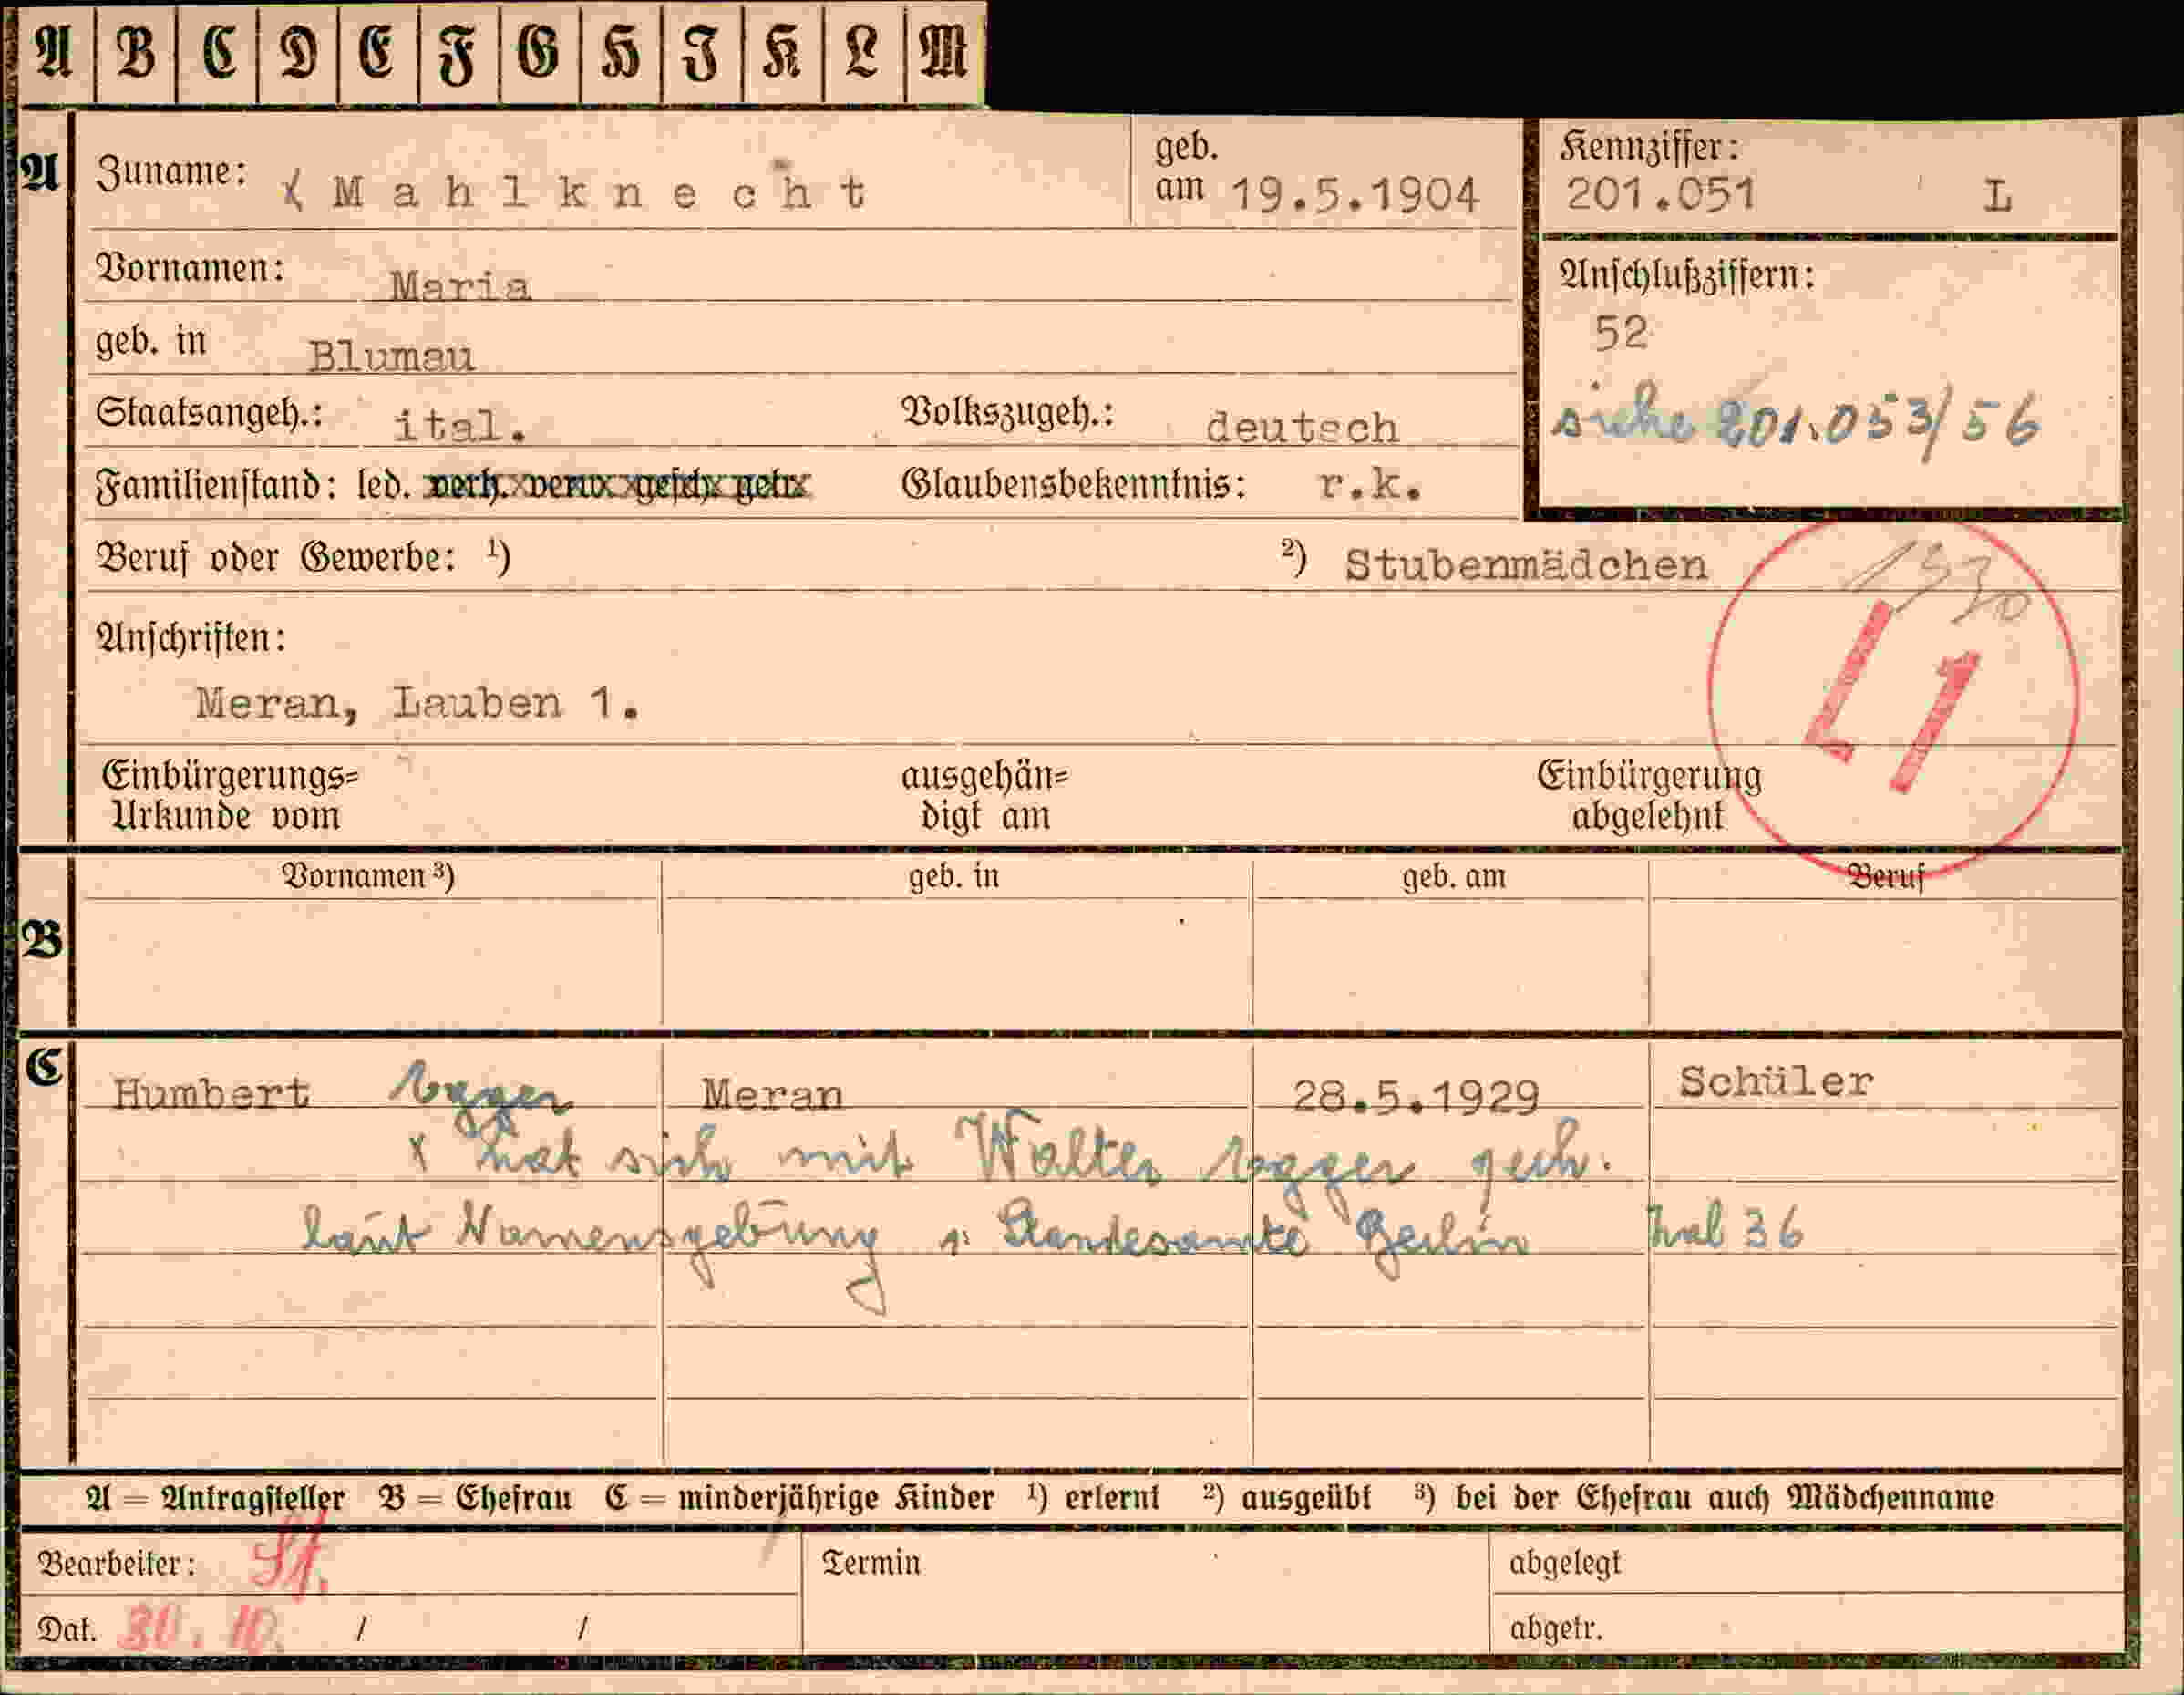 A B C D E F G H I K L M
A Zuname: Mahlknecht geb. am 19.5.1904 Kennziffer: 201.051 L
Vornamen: Maria
Anschlußziffern:
52
geb. in Blumau
siehe 201.053/56
Staatsangeh.: ital. Volkszugeh.: deutsch
Familienstand: led. verh. verw. gesch. getr. Glaubensbekenntnis: r.k.
Beruf oder Gewerbe: ¹) ²) Stubenmädchen
L1
Anschriften:
Meran, Lauben 1.
Einbürgerungs= ausgehän= Einbürgerung
Urkunde vom digt am abgelehnt
Vornamen ³) geb. in geb. am Beruf
B
C Humbert Egger Meran 28.5.1929 Schüler
x hat sich mit Walter Egger
laut Namensgebung Standesamte Berlin 36
A = Antragsteller B = Ehefrau C = minderjährige Kinder ¹) erlernt ²) ausgeübt ³) bei der Ehefrau auch Mädchenname
Bearbeiter: St. Termin abgelegt
Dat. 30.10. / / abgetr.